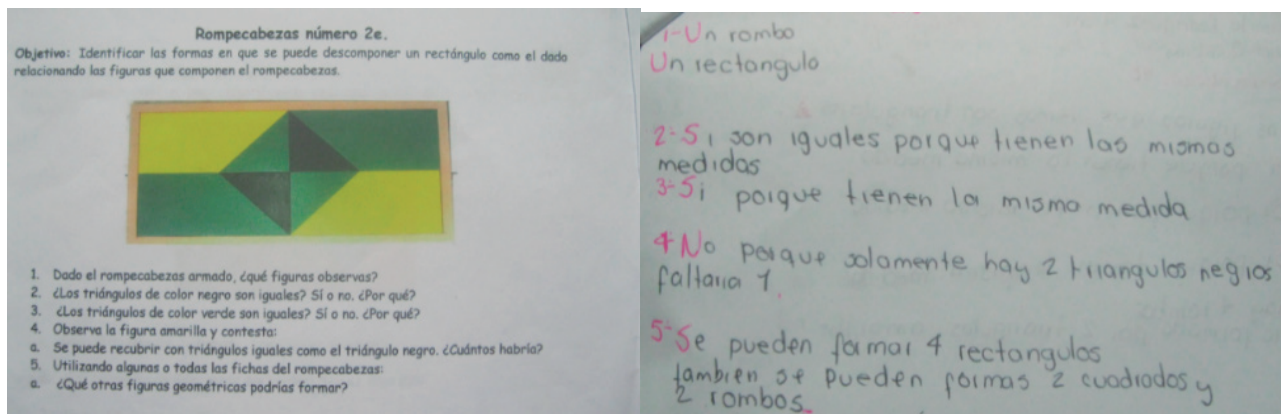 Rompecabezas número 2e.
Objetivo: Identificar las formas en que se puede descomponer un rectángulo como el dado
relacionando las figuras que componen el rompecabezas.
1. Dado el rompecabezas armado, ¿qué figuras observas?
2. ¿Los triángulos de color negro son iguales? Sí o no. ¿Por qué?
3. ¿Los triángulos de color verde son iguales? Sí o no. ¿Por qué?
4. Observa la figura amarilla y contesta:
a. Se puede recubrir con triángulos iguales como el triángulo negro. ¿Cuántos habría?
5. Utilizando algunas o todas las fichas del rompecabezas:
a. ¿Qué otras figuras geométricas podrías formar?
1-Un rombo
Un rectangulo
2-Si son iguales porque tienen las mismas
medidas
3-Si porque tienen la misma medida
4 No porque solamente hay 2 triangulos negros
faltaria 1
5-Se pueden formar 4 rectangulos
tambien se pueden formas 2 cuadrados y
2 rombos.